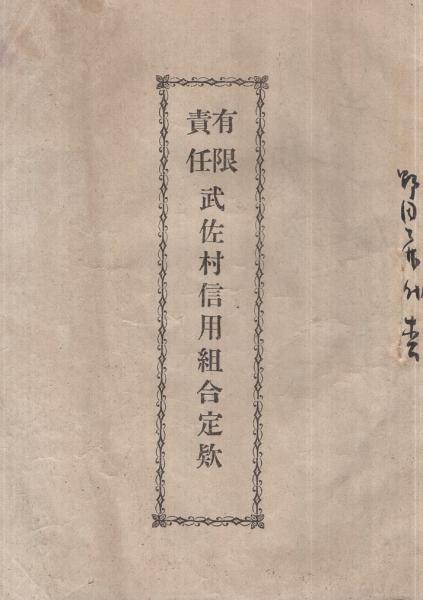 有限責任武佐村信用組合定款
野田